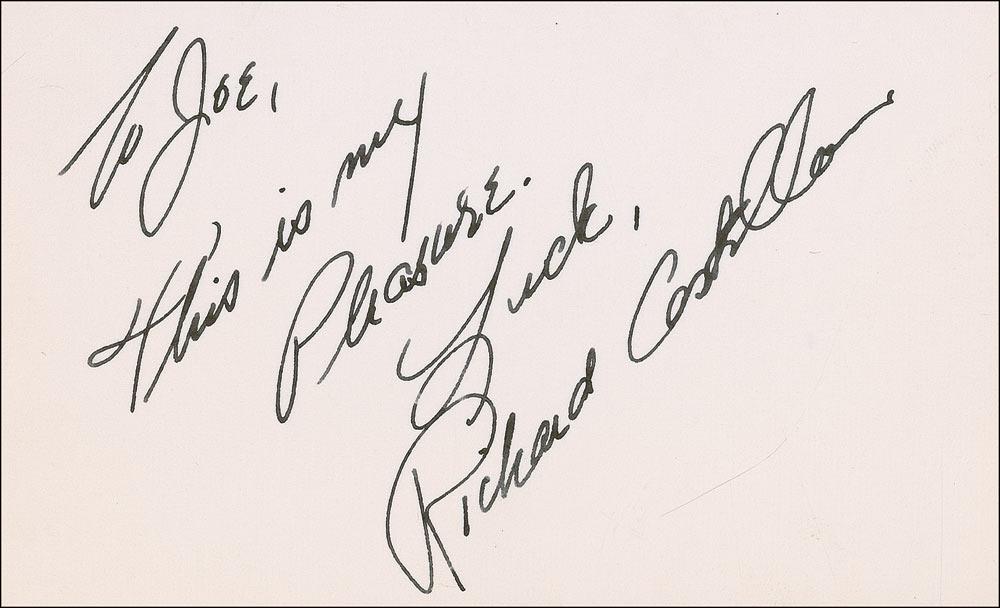 To Joe,
This is my
Pleasure.
Luck,
Richard Castellano